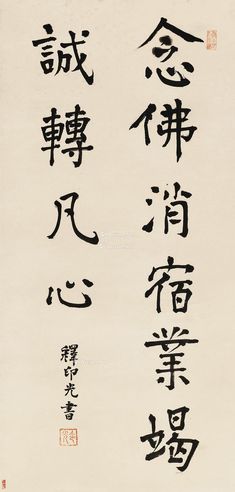 念佛消宿業竭
誠轉凡心
釋印光書